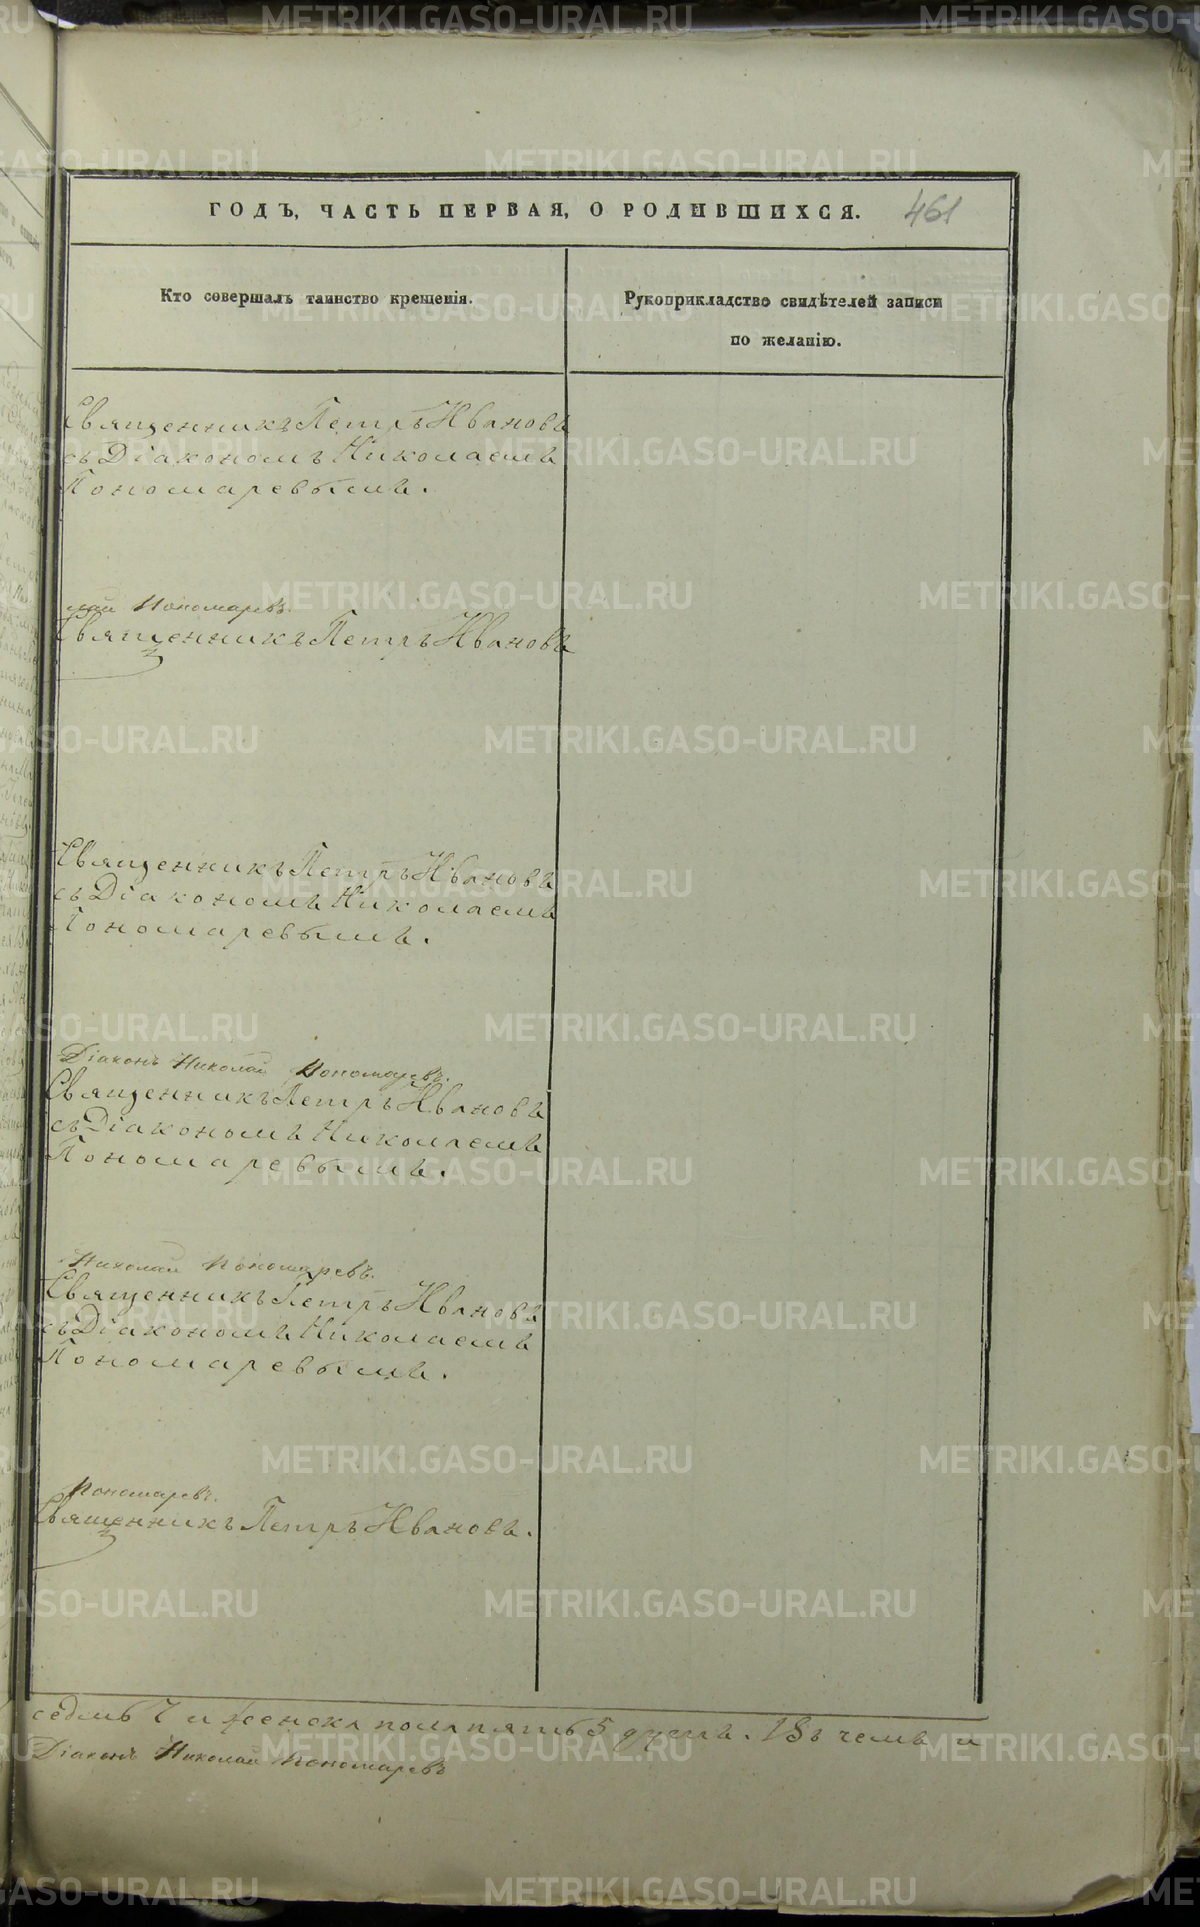 ГОДЪ, ЧАСТЬ ПЕРВАЯ, О РОДИВШИХСЯ. 461
Кто совершалъ таинство крещенія.
Рукоприкладство свидѣтелей записи
по желанію.
Священникъ Петръ Ивановъ
съ Діакономъ Николаемъ
Пономаревымъ.
лай Пономаревъ.
Священникъ Петръ Ивановъ
Священникъ Петръ Ивановъ
съ Діакономъ Николаемъ
Пономаревымъ.
Діаконъ Николай Пономаревъ.
Священникъ Петръ Ивановъ
съ Діакономъ Николаемъ
Пономаревымъ.
Николай Пономаревъ.
Священникъ Петръ Ивановъ
съ Діакономъ Николаемъ
Пономаревымъ.
Пономаревъ.
Священникъ Петръ Ивановъ.
седмь 7 и женска пола пять 5 душъ. Въ чемъ и
Діаконъ Николай Пономаревъ
METRIKI.GASO-URAL.RU